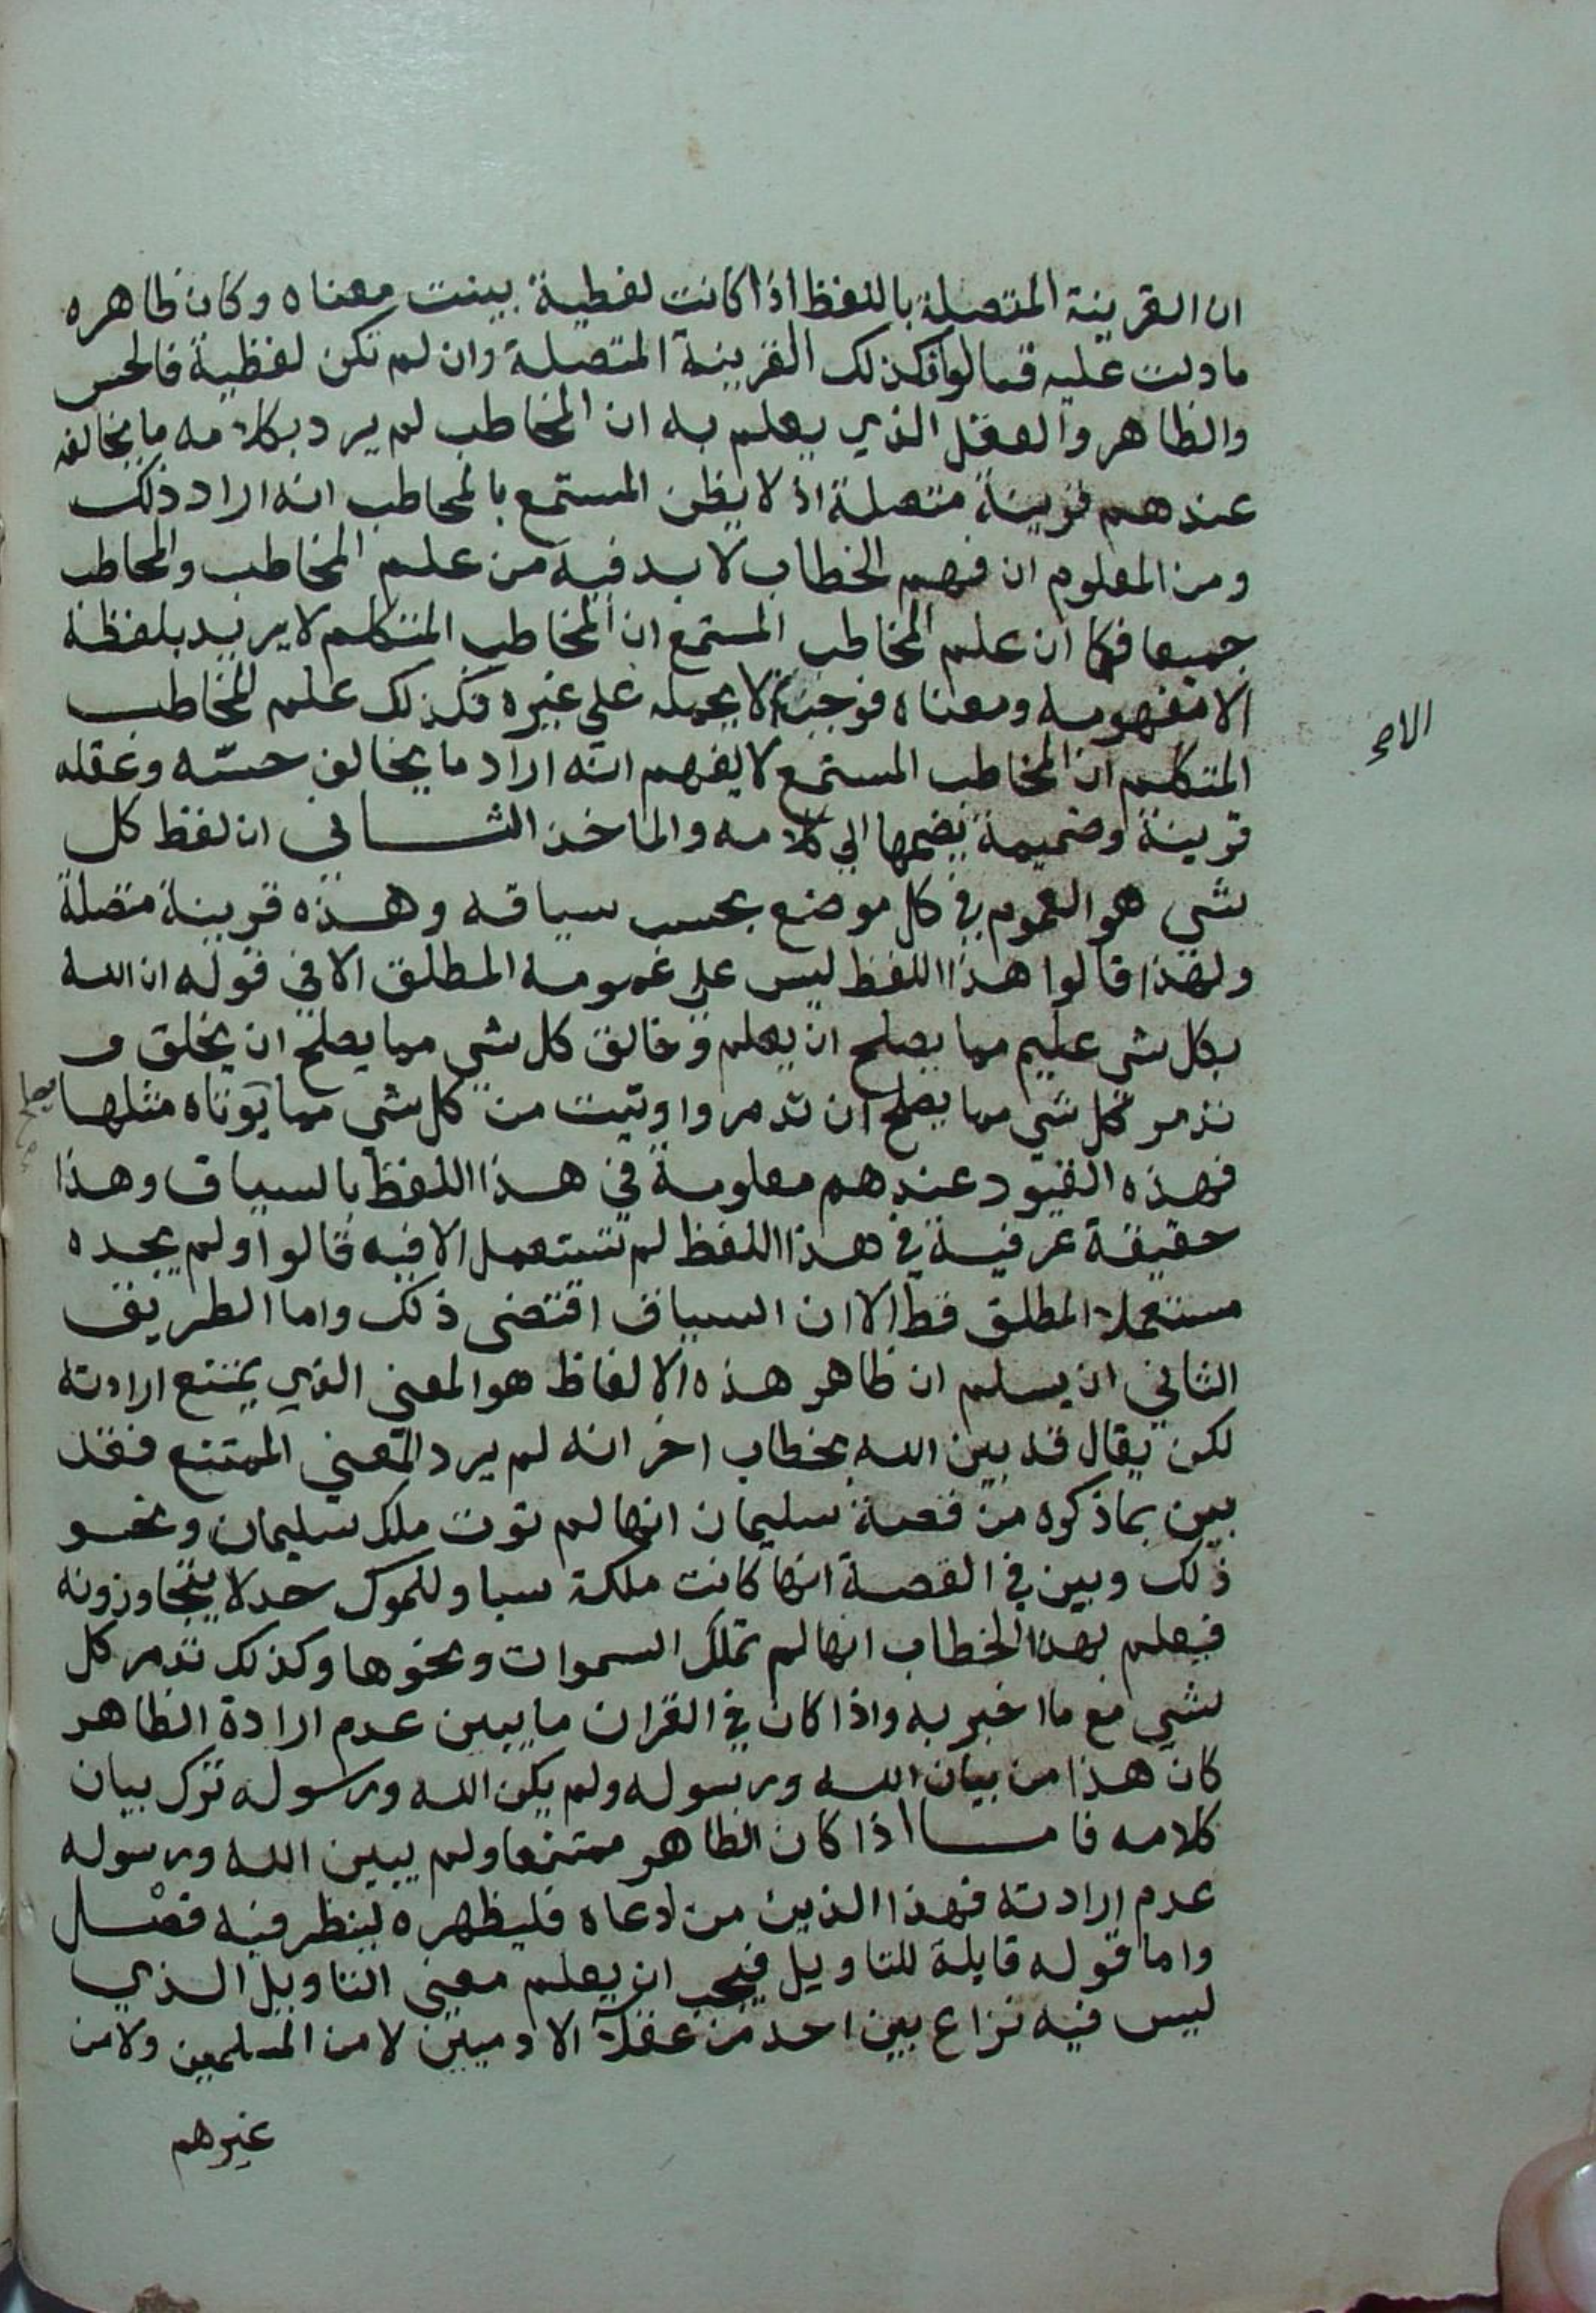 ان القرينة المتصلة باللفظ اذا كانت لفظية بينت معناه وكان ظاهره
ما دلت عليه قالوا فكذلك القرينة المتصلة وان لم تكن لفظية فالحس
والظاهر والعقل الذي يعلم به ان المخاطب لم يرد بكلامه ما يخالفه
عندهم قرينة متصلة اذ لا يظن المستمع بالمخاطب انه اراد ذلك
ومن المعلوم ان فهم الخطاب لا بد فيه من علم المخاطب والمخاطب
جميعا فكما ان علم المخاطب المستمع ان المخاطب المتكلم لا يريد بلفظة
الا مفهومه ومعناه لا يحمله على غيره فكذلك علم المخاطب
المتكلم ان المخاطب المستمع لا يفهم انه اراد ما يخالف حسه وعقله
قرينة وضميمة يضمها الي كلامه والماخذ الثاني ان لفظ كل
شي هو العموم في كل موضع بحسب سياقه وهذه قرينة متصلة
ولهذا قالوا هذا اللفظ ليس علي عمومه المطلق الا في قوله ان الله
بكل شي عليم مما يصلح ان يعلم وخالق كل شي مما يصلح ان يخلق و
تدمر كل شي مما يصلح ان تدمر واوتيت من كل شي مما يوتاه مثلها
فهذه القيود عندهم معلومة في هذا اللفظ بالسياق وهذا
حقيقة عرفية في هذا اللفظ لم تستعمل الا فيه قالوا ولم يجده
مستعملا المطلق قط الا ان السياق اقتضى ذلك واما الطريق
الثاني ان يسلم ان ظاهر هذه الالفاظ هو المعني الذي يمتنع ارادته
لكن يقال قد بين الله بخطاب اخر انه لم يرد المعني الممتنع فقد
بين بما ذكره من قصة سليمان انها لم توت ملك سليمان ونحو
ذلك وبين في القصة انها كانت ملكة سبا وللموك حد لا يتجاوزونه
فيعلم بهذا الخطاب انها لم تملك السموات ونحوها وكذلك تدمر كل
شي مع ما اخبر به واذا كان في القران ما يبين عدم ارادة الظاهر
كان هذا من بيان الله ورسوله ولم يكن الله ورسوله ترك بيان
كلامه فاما اذا كان الظاهر ممتنعا ولم يبين الله ورسوله
عدم ارادته فهذا الذين من ادعاه فليظهره لينظر فيه فصل
واما قوله قايلة للتاويل فيجب ان يعلم معني التاويل الذي
ليس فيه نزاع بين احد من عقلآ الادميين لا من المسلمين ولا من
غيرهم